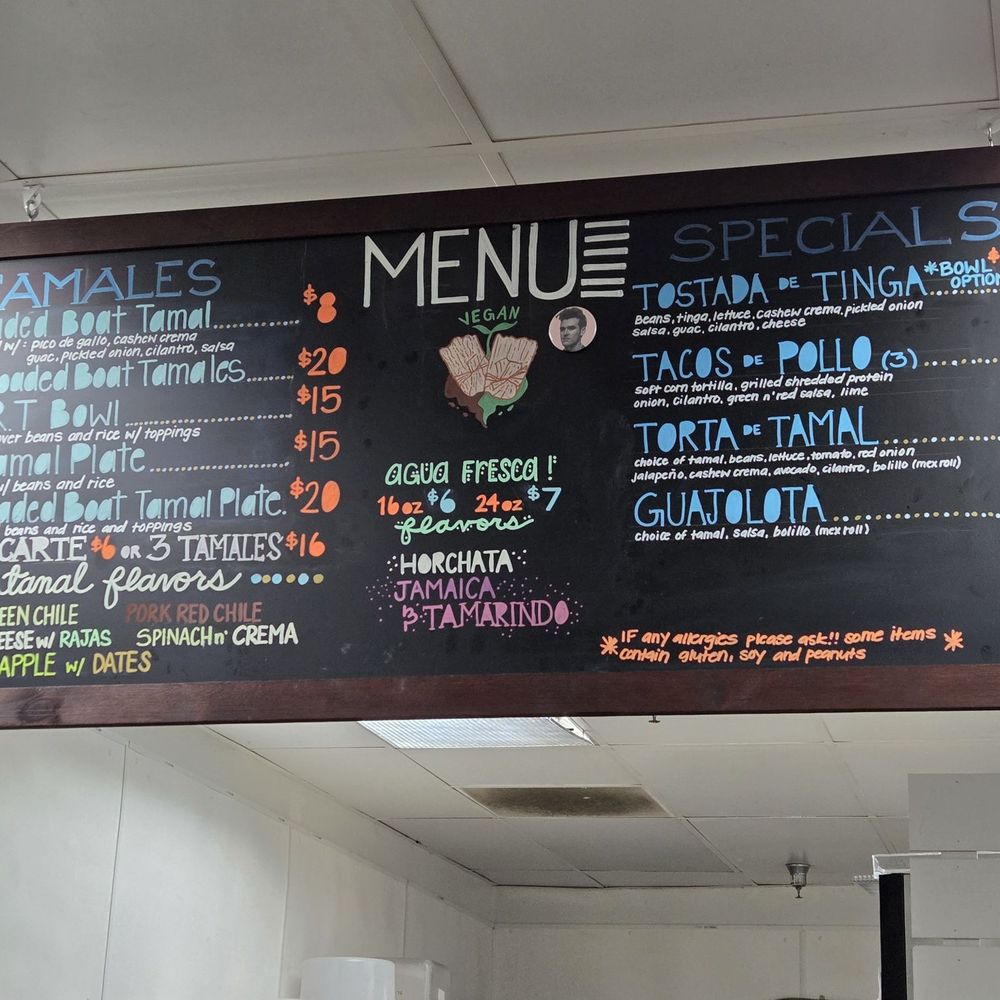 TAMALES
Boat Tamal $8
w/: pico de gallo, cashew crema
guac, pickled onion, cilantro, salsa
Boat Tamales $20
Bowl $15
beans and rice w/ toppings
Plate $15
w/ beans and rice
Boat Tamal Plate. $20
beans and rice and toppings
CARTE $6 OR 3 TAMALES $16
tamal flavors
CHILE PORK RED CHILE
w/ RAJAS SPINACH n' CREMA
APPLE w/ DATES
MENU
VEGAN
AGUA FRESCA!
16oz $6 24oz $7
flavors
HORCHATA
JAMAICA
& TAMARINDO
SPECIALS
TOSTADA DE TINGA *BOWL
Beans, tinga, lettuce, cashew crema, pickled onion
salsa, guac, cilantro, cheese
TACOS DE POLLO (3)
soft corn tortilla, grilled shredded protein
onion, cilantro, green n' red salsa, lime
TORTA DE TAMAL
choice of tamal, beans, lettuce, tomato, red onion
jalapeño, cashew crema, avocado, cilantro, bolillo (mex roll)
GUAJOLOTA
choice of tamal, salsa, bolillo (mex roll)
*IF any allergies please ask!! some items *
contain gluten, soy and peanuts